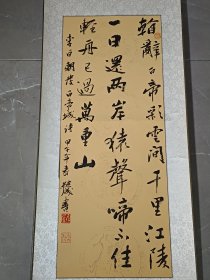 朝辭白帝彩雲間千里江陵
一日還兩岸猿聲啼不住
輕舟已過萬重山
李白朝發白帝城詩甲午年春